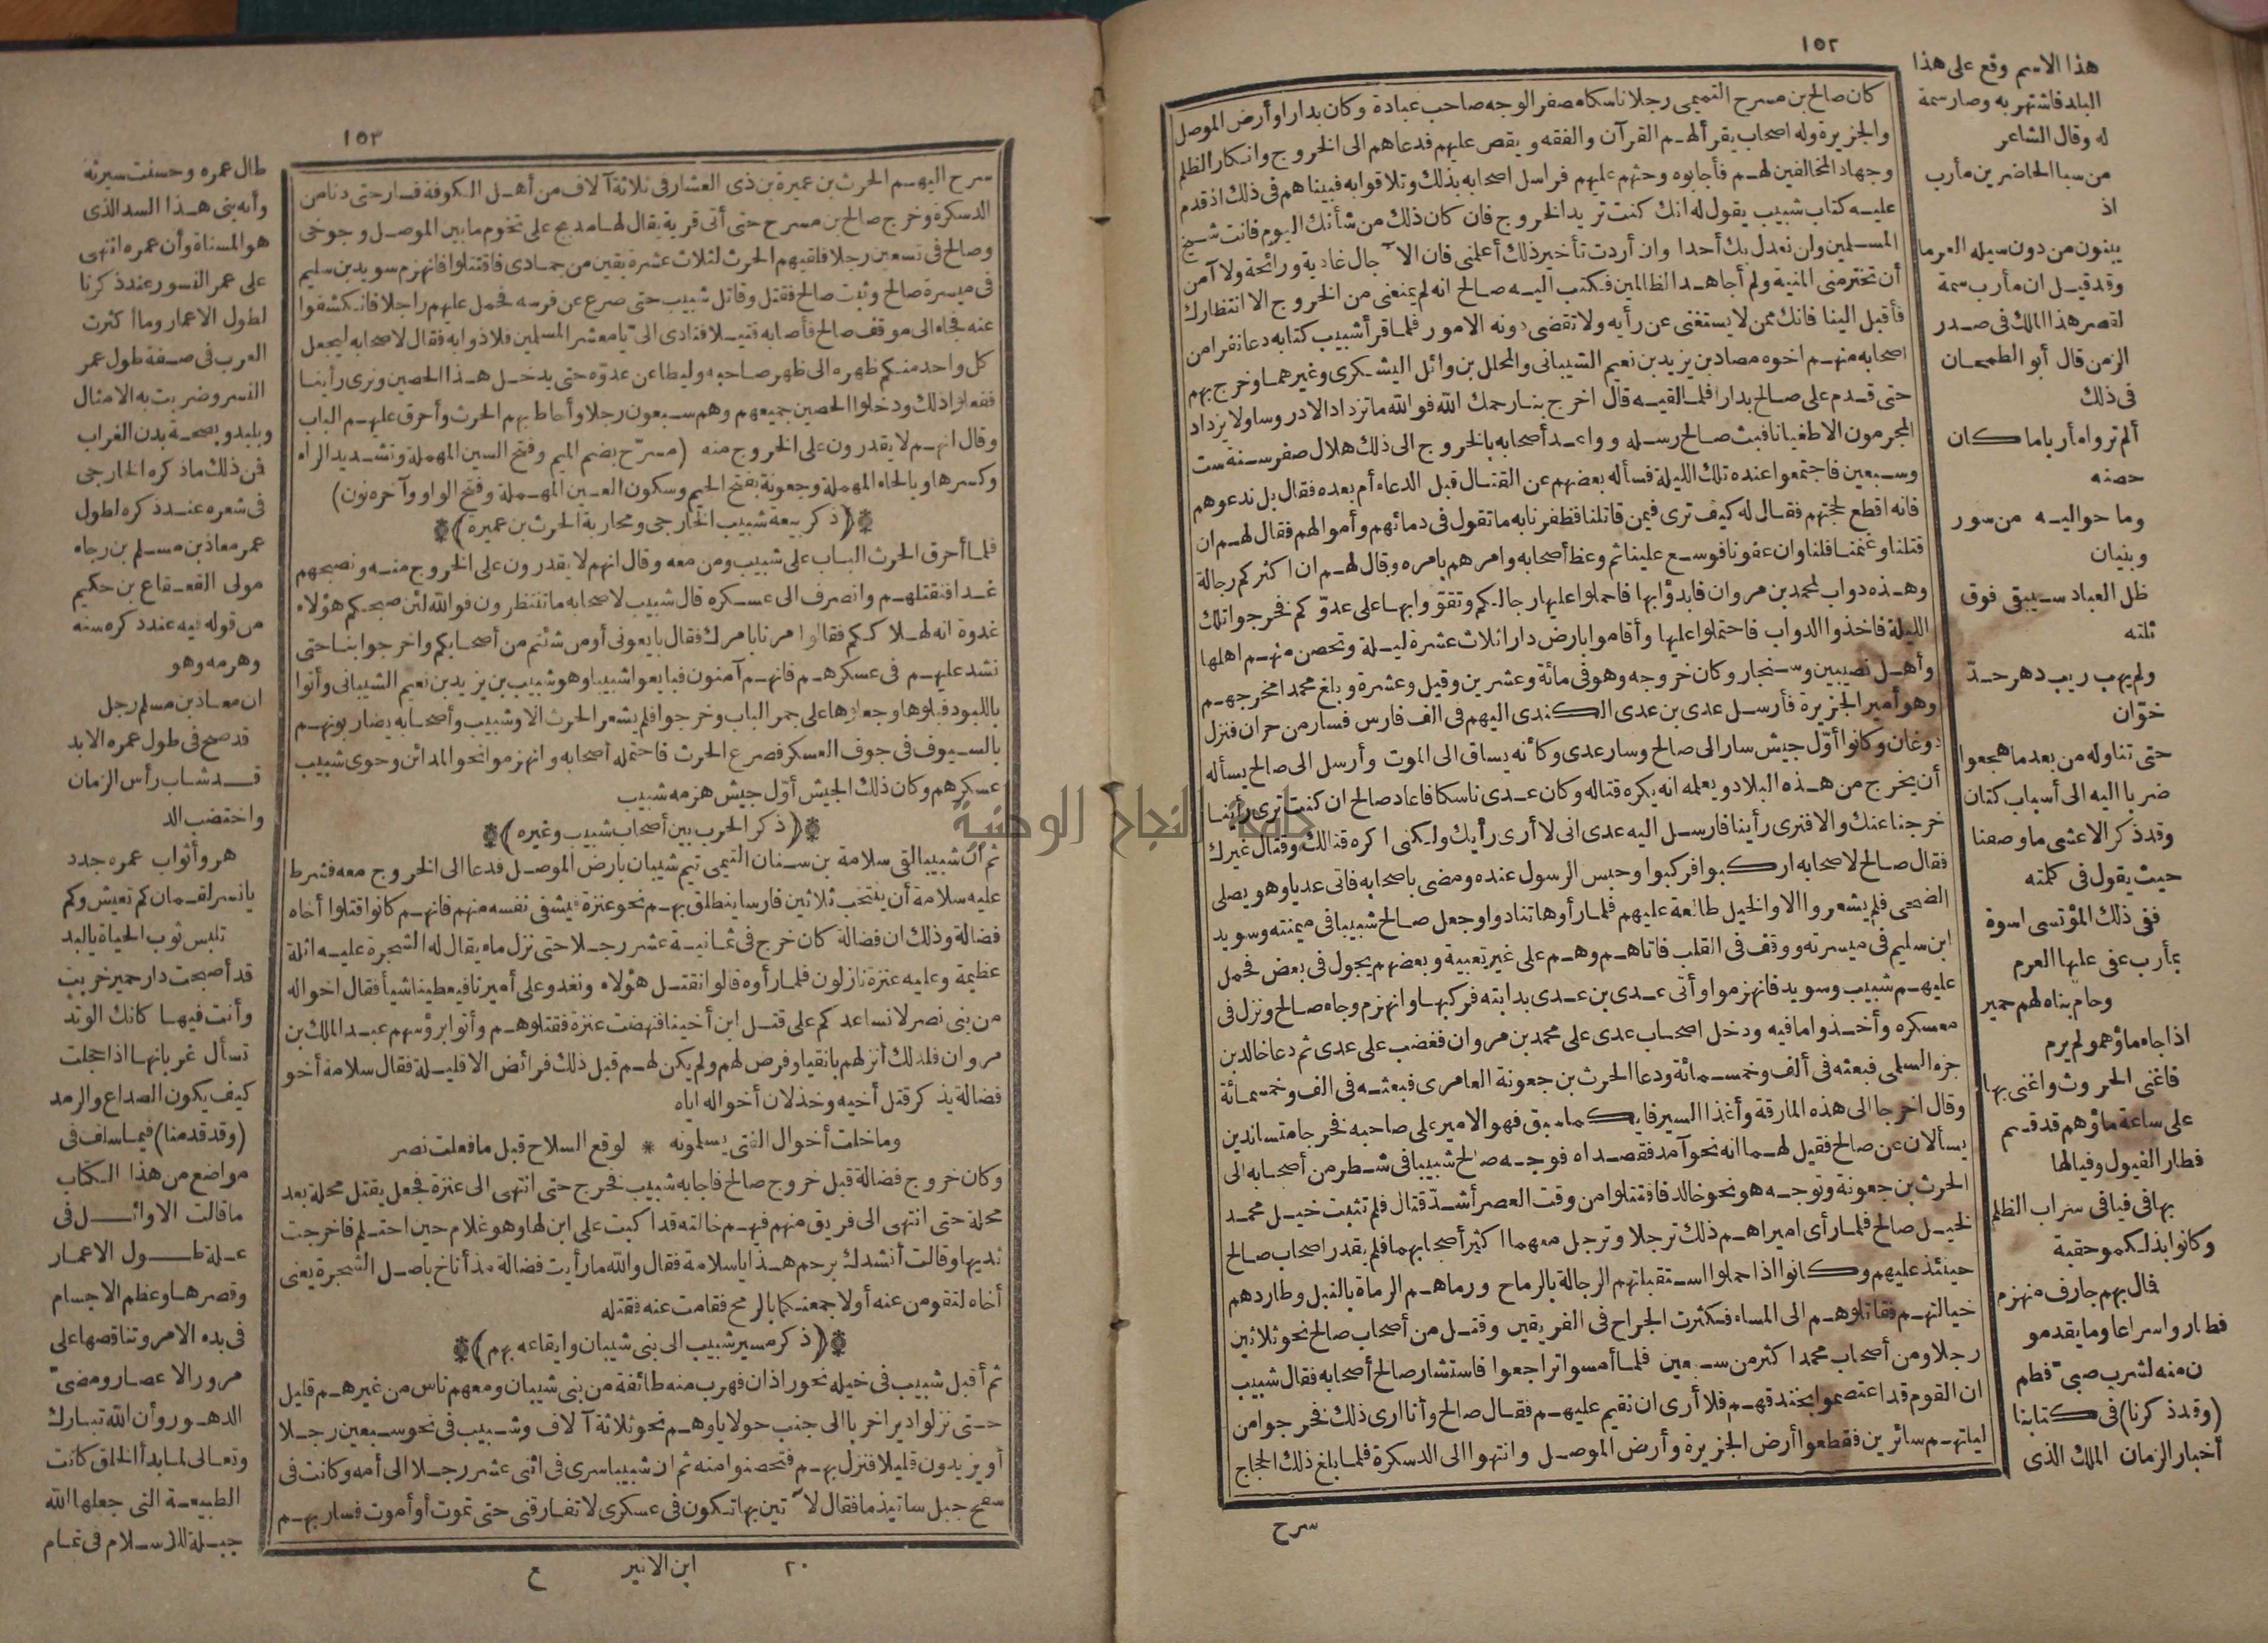 ١٥٢
كان صالح بن مسرح التميمى رجلا ناسكا مصفر الوجه صاحب عبادة وكان بدارا وأرض الموصل
والجزيرة وله اصحاب يقرأ لهم القرآن والفقه ويقص عليهم فدعاهم الى الخروج وانكار الظلم
وجهاد المخالفين لهم فأجابوه وحثهم عليهم فراسل اصحابه بذلك وتلاقوا به فبيناهم فى ذلك اذ قدم
عليه كتاب شبيب يقول له انك كنت تريد الخروج فان كان ذلك من شأنك اليوم فانت شيخ
المسلمين ولن نعدل بك أحدا وان أردت تأخير ذلك أعلمنى فان الآجال غادية ورائحة ولا آمن
أن تخترمنى المنية ولم أجاهد الظالمين فكتب اليه صالح انه لم يمنعنى من الخروج الا انتظارك
فأقبل الينا فانك ممن لا يستغنى عن رأيه ولا تقضى دونه الامور فلما قرأ شبيب كتابه دعا نفرا من
اصحابه منهم اخوه مصاد بن يزيد بن نعيم الشيبانى والمحلل بن وائل اليشكرى وغيرهما وخرج بهم
حتى قدم على صالح بدارا فلما لقيه قال اخرج بنا رحمك الله فوالله ما تزداد الا دروسا ولا يزداد
المجرمون الا طغيانا فبث صالح رسله وواعد أصحابه بالخروج الى ذلك هلال صفر سنة ست
وسبعين فاجتمعوا عنده تلك الليلة فسأله بعضهم عن القتال قبل الدعاء أم بعده فقال بل ندعوهم
فانه اقطع لحجتهم فقال له كيف ترى فيمن قاتلنا فظفرنا به ما تقول فى دمائهم وأموالهم فقال لهم ان
قتلنا وغنمنا فلنا وان عفونا فوسع علينا ثم وعظ أصحابه وامرهم بامره وقال لهم ان اكثركم رجالة
وهذه دواب لمحمد بن مروان فابدؤا بها فاحملوا عليها رجالكم وتقووا بها على عدوّكم فخرجوا تلك
الليلة فاخذوا الدواب فاحتملوا عليها وأقاموا بارض دارا ثلاث عشرة ليلة وتحصن منهم اهلها
وأهل نصيبين وسنجار وكان خروجه وهو فى مائة وعشرين وقيل وعشرة وبلغ محمدا مخرجهم
وهو أمير الجزيرة فأرسل عدى بن عدى الكندى اليهم فى الف فارس فسار من حران فنزل
دوغان وكانوا أوّل جيش سار الى صالح وسار عدى وكأنه يساق الى الموت وأرسل الى صالح يسأله
أن يخرج من هذه البلاد ويعلمه انه يكره قتاله وكان عدى ناسكا فاعاد صالح ان كنت ترى رأينا
خرجنا عنك والا فنرى رأينا فارسل اليه عدى انى لا أرى رأيك ولكنى اكره قتالك وقتال غيرك
فقال صالح لاصحابه اركبوا فركبوا وحبس الرسول عنده ومضى باصحابه فاتى عديا وهو يصلى
الضحى فلم يشعروا الا والخيل طالعة عليهم فلما رأوها تنادوا وجعل صالح شبيبا فى ميمنته وسويد
ابن سليم فى ميسرته ووقف فى القلب فاتاهم وهم على غير تعبية وبعضهم يجول فى بعض فحمل
عليهم شبيب وسويد فانهزموا وأتى عدى بن عدى بدابته فركبها وانهزم وجاء صالح ونزل فى
معسكره وأخذوا ما فيه ودخل اصحاب عدى على محمد بن مروان فغضب على عدى ثم دعا خالد بن
جزء السلمى فبعثه فى ألف وخمسمائة ودعا الحرث بن جعونة العامرى فبعثه فى الف وخمسمائة
وقال اخرجا الى هذه المارقة وأغذا السير فايكما سبق فهو الامير على صاحبه فخرجا متساندين
يسألان عن صالح فقيل لهما انه نحو آمد فقصداه فوجه صالح شبيبا فى شطر من أصحابه الى
الحرث بن جعونة وتوجه هو نحو خالد فاقتتلوا من وقت العصر أشدّ قتال فلم تثبت خيل محمد
لخيل صالح فلما رأى اميراهم ذلك ترجلا وترجل معهما اكثر أصحابهما فلم يقدر اصحاب صالح
حينئذ عليهم وكانوا اذا حملوا استقبلتهم الرجالة بالرماح ورماهم الرماة بالنبل وطاردهم
خيالتهم فقاتلوهم الى المساء فكثرت الجراح فى الفريقين وقتل من أصحاب صالح نحو ثلاثين
رجلا ومن أصحاب محمد اكثر من سبعين فلما أمسوا تراجعوا فاستشار صالح أصحابه فقال شبيب
ان القوم قد اعتصموا بخندقهم فلا أرى ان نقيم عليهم فقال صالح وأنا ارى ذلك فخرجوا من
ليلتهم سائرين فقطعوا أرض الجزيرة وأرض الموصل وانتهوا الى الدسكرة فلما بلغ ذلك الحجاج
سرح
هذا الاسم وقع على هذا
البلد فاشتهر به وصار سمة
له وقال الشاعر
من سبا الحاضرين مأرب
اذ
يبنون من دون سيله العرما
وقد قيل ان مأرب سمة
لقصر هذا الملك فى صدر
الزمن قال أبو الطمحان
فى ذلك
ألم تروا مأربا ما كان
حصنه
وما حواليه من سور
وبنيان
ظل العباد سيبقى فوق
ثلته
ولم يهب ريب دهر حدّ
خوّان
حتى تناوله من بعد ما هجعوا
ضربا اليه الى أسباب كتان
وقد ذكر الاعشى ما وصفنا
حيث يقول فى كلمته
ففى ذلك المؤتسى اسوة
بمأرب عفى عليها العرم
وحام بناه لهم حمير
اذا جاء ماؤهمو لم يرم
فاغنى الحروث واغنى بها
على ساعة ماؤهم قد قسم
فطار الفيول وفيالها
بها فى فيافى سراب الظلم
وكانوا بذلكمو حقبة
فال بهم جارف منهزم
فطاروا سراعا وما يقدمو
ن منه لشرب صبىّ فطم
(وقد ذكرنا) فى كتابنا
أخبار الزمان الملك الذى
١٥٣
سرح اليهم الحرث بن عميرة بن ذى العشار فى ثلاثة آلاف من أهل الكوفة فسار حتى دنا من
الدسكرة وخرج صالح بن مسرح حتى أتى قرية يقال لها مدبج على تخوم ما بين الموصل وجوخى
وصالح فى تسعين رجلا فلقيهم الحرث لثلاث عشرة بقين من جمادى فاقتتلوا فانهزم سويد بن سليم
فى ميسرة صالح وثبت صالح فقتل وقاتل شبيب حتى صرع عن فرسه فحمل عليهم راجلا فانكشفوا
عنه فجاء الى موقف صالح فأصابه قتيلا فنادى الىّ يا معشر المسلمين فلاذوا به فقال لاصحابه ليجعل
كل واحد منكم ظهره الى ظهر صاحبه وليطاعن عدوّه حتى يدخل هذا الحصين ونرى رأينا
ففعلوا ذلك ودخلوا الحصين جميعهم وهم سبعون رجلا وأحاط بهم الحرث وأحرق عليهم الباب
وقال انهم لا يقدرون على الخروج منه (مسرّح بضم الميم وفتح السين المهملة وتشديد الراء
وكسرها وبالحاء المهملة وجعونة بفتح الجيم وسكون العين المهملة وفتح الواو وآخره نون)
﴿ذكر بيعة شبيب الخارجى ومحاربة الحرث بن عميرة﴾
فلما أحرق الحرث الباب على شبيب ومن معه وقال انهم لا يقدرون على الخروج منه ونصبحهم
غدا فنقتلهم وانصرف الى عسكره قال شبيب لاصحابه ما تنتظرون فوالله لئن صبحكم هؤلاء
غدوة انه لهلاككم فقالوا مرنا بامرك فقال بايعونى أو من شئتم من أصحابكم واخرجوا بنا حتى
نشد عليهم فى عسكرهم فانهم آمنون فبايعوا شبيبا وهو شبيب بن يزيد بن نعيم الشيبانى وأتوا
باللبود فبلوها وجعلوها على جمر الباب وخرجوا فلم يشعر الحرث الا وشبيب وأصحابه يضاربونهم
بالسيوف فى جوف العسكر فصرع الحرث فاحتمله أصحابه وانهزموا نحو المدائن وحوى شبيب
عسكرهم وكان ذلك الجيش أوّل جيش هزمه شبيب
﴿ذكر الحرب بين أصحاب شبيب وغيره﴾
ثم ان شبيبا لقى سلامة بن سنان التيمى تيم شيبان بارض الموصل فدعا الى الخروج معه فشرط
عليه سلامة أن ينتخب ثلاثين فارسا ينطلق بهم نحو عنزة فيشفى نفسه منهم فانهم كانوا قتلوا أخاه
فضالة وذلك ان فضالة كان خرج فى ثمانية عشر رجلا حتى نزل ماء يقال له الشجرة عليه اثلة
عظيمة وعليه عنزة نازلون فلما رأوه قالوا نقتل هؤلاء ونغدو على أميرنا فيعطينا شيأ فقال اخواله
من بنى نصر لا نساعدكم على قتل ابن أخينا فنهضت عنزة فقتلوهم وأتوا برؤسهم عبد الملك بن
مروان فلذلك أنزلهم بانقيا وفرض لهم ولم يكن لهم قبل ذلك فرائض الا قليلة فقال سلامة أخو
فضالة يذكر قتل أخيه وخذلان أخواله اياه
وما خلت أخوال الفتى يسلمونه * لوقع السلاح قبل ما فعلت نصر
وكان خروج فضالة قبل خروج صالح فاجابه شبيب فخرج حتى انتهى الى عنزة فجعل يقتل محلة بعد
محلة حتى انتهى الى فريق منهم فيهم خالته قد اكبت على ابن لها وهو غلام حين احتلم فاخرجت
ثديها وقالت أنشدك برحم هذا يا سلامة فقال والله ما رأيت فضالة مذ أناخ باصل الشجرة يعنى
أخاه لتقومن عنه أو لاجمعنكما بالرمح فقامت عنه فقتله
﴿ذكر مسير شبيب الى بنى شيبان وايقاعه بهم﴾
ثم أقبل شبيب فى خيله نحو راذان فهرب منه طائفة من بنى شيبان ومعهم ناس من غيرهم قليل
حتى نزلوا دير اخربا الى جنب حولايا وهم نحو ثلاثة آلاف وشبيب فى نحو سبعين رجلا
أو يزيدون قليلا فنزل بهم فتحصنوا منه ثم ان شبيبا سرى فى اثنى عشر رجلا الى أمه وكانت فى
سفح جبل ساتيدما فقال لآتين بها تكون فى عسكرى لا تفارقنى حتى تموت أو أموت فسار بهم
٢٠ ابن الاثير ع
طال عمره وحسنت سيرته
وأنه بنى هذا السد الذى
هو المسناة وأن عمره انتهى
على عمر النسور عند ذكرنا
لطول الاعمار وما أكثرت
العرب فى صفة طول عمر
النسر وضربت به الامثال
وبلبد وبصحة بدن الغراب
فن ذلك ما ذكره الخارجى
فى شعره عند ذكره لطول
عمر معاذ بن مسلم بن رجاء
مولى القعقاع بن حكيم
من قوله فيه عند ذكره سنه
وهرمه وهو
ان معاذ بن مسلم رجل
قد صح فى طول عمره الابد
قد شاب رأس الزمان
واختضب الد
هر وأثواب عمره جدد
يا نسر لقمان كم تعيش وكم
تلبس ثوب الحياة يا لبد
قد أصبحت دار حمير خربت
وأنت فيها كانك الوتد
تسأل غربانها اذا حجلت
كيف يكون الصداع والرمد
(وقد قدمنا) فيما سلف فى
مواضع من هذا الكتاب
ما قالت الاوائل فى
علة طول الاعمار
وقصرها وعظم الاجسام
فى بدء الامر وتناقصها على
مرور الاعصار ومضىّ
الدهور وأن الله تبارك
وتعالى لما بدأ الخلق كانت
الطبيعة التى جعلها الله
جبلة للاسلام فى تمام
جامعة النجاح الوطنية